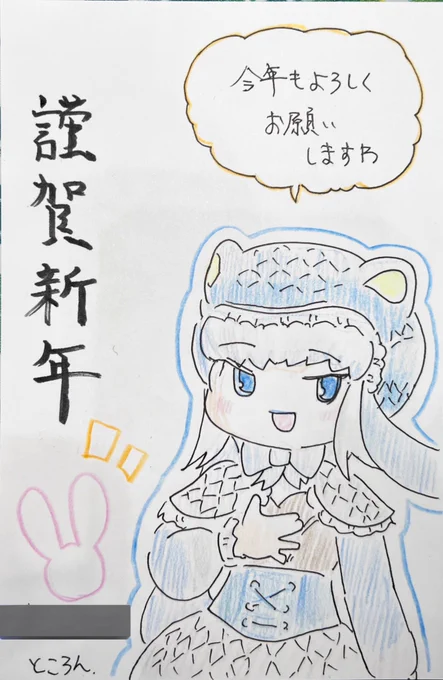 謹賀新年
今年もよろしく
お願い
しますわ
ところん.